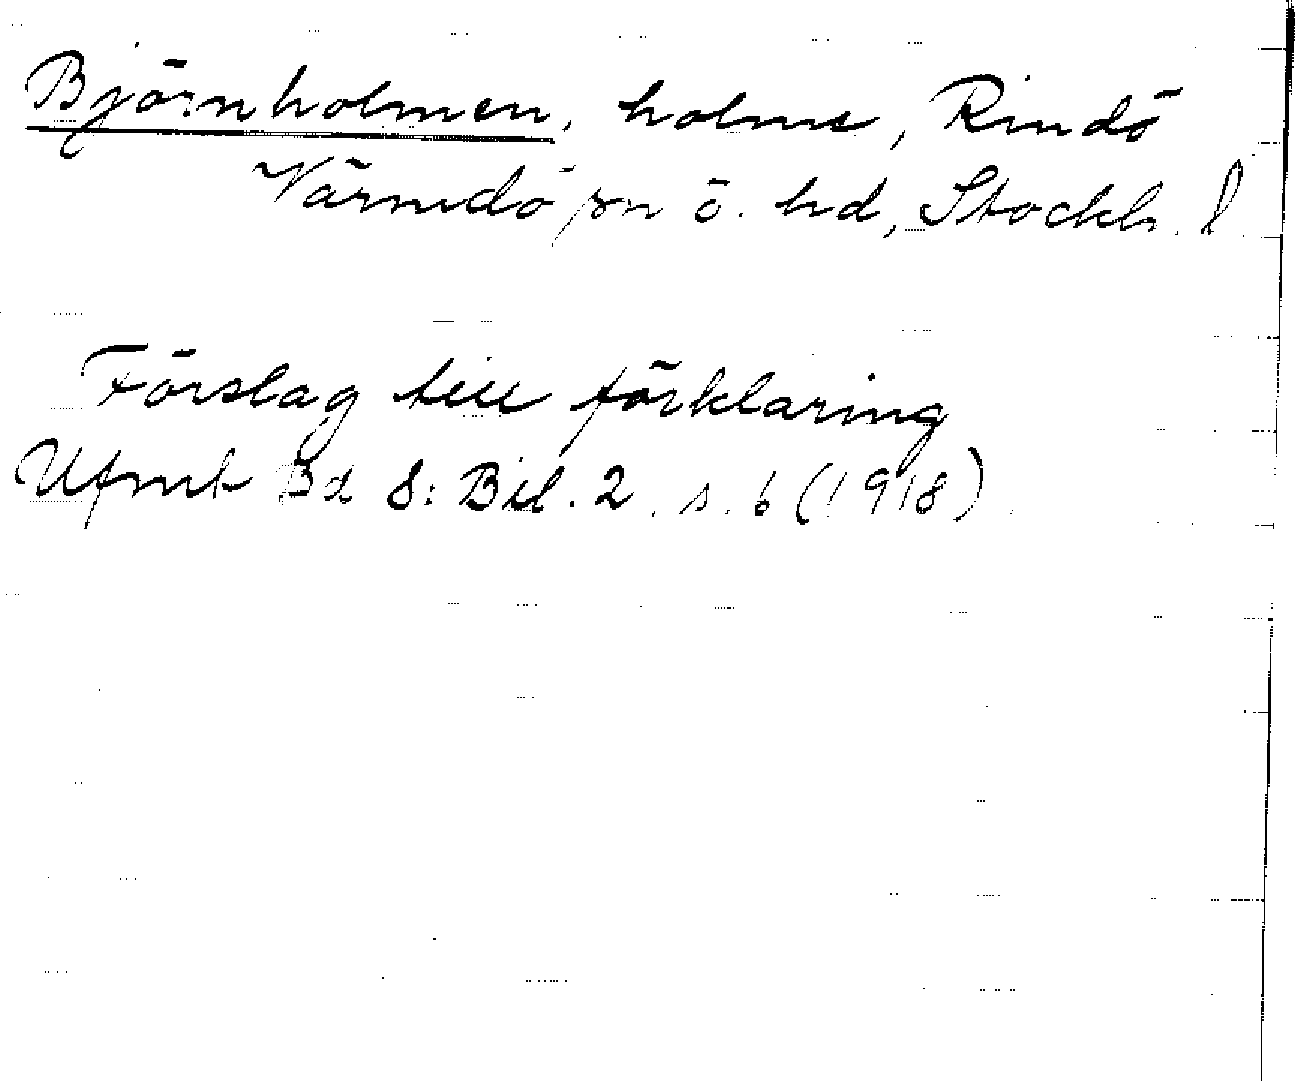 Björnholmen, holme, Rindö
Värmdö sn o. hd, Stockh. l
Förslag till förklaring
Ufmt Bd 8: Bil. 2. s. 6 (1918)